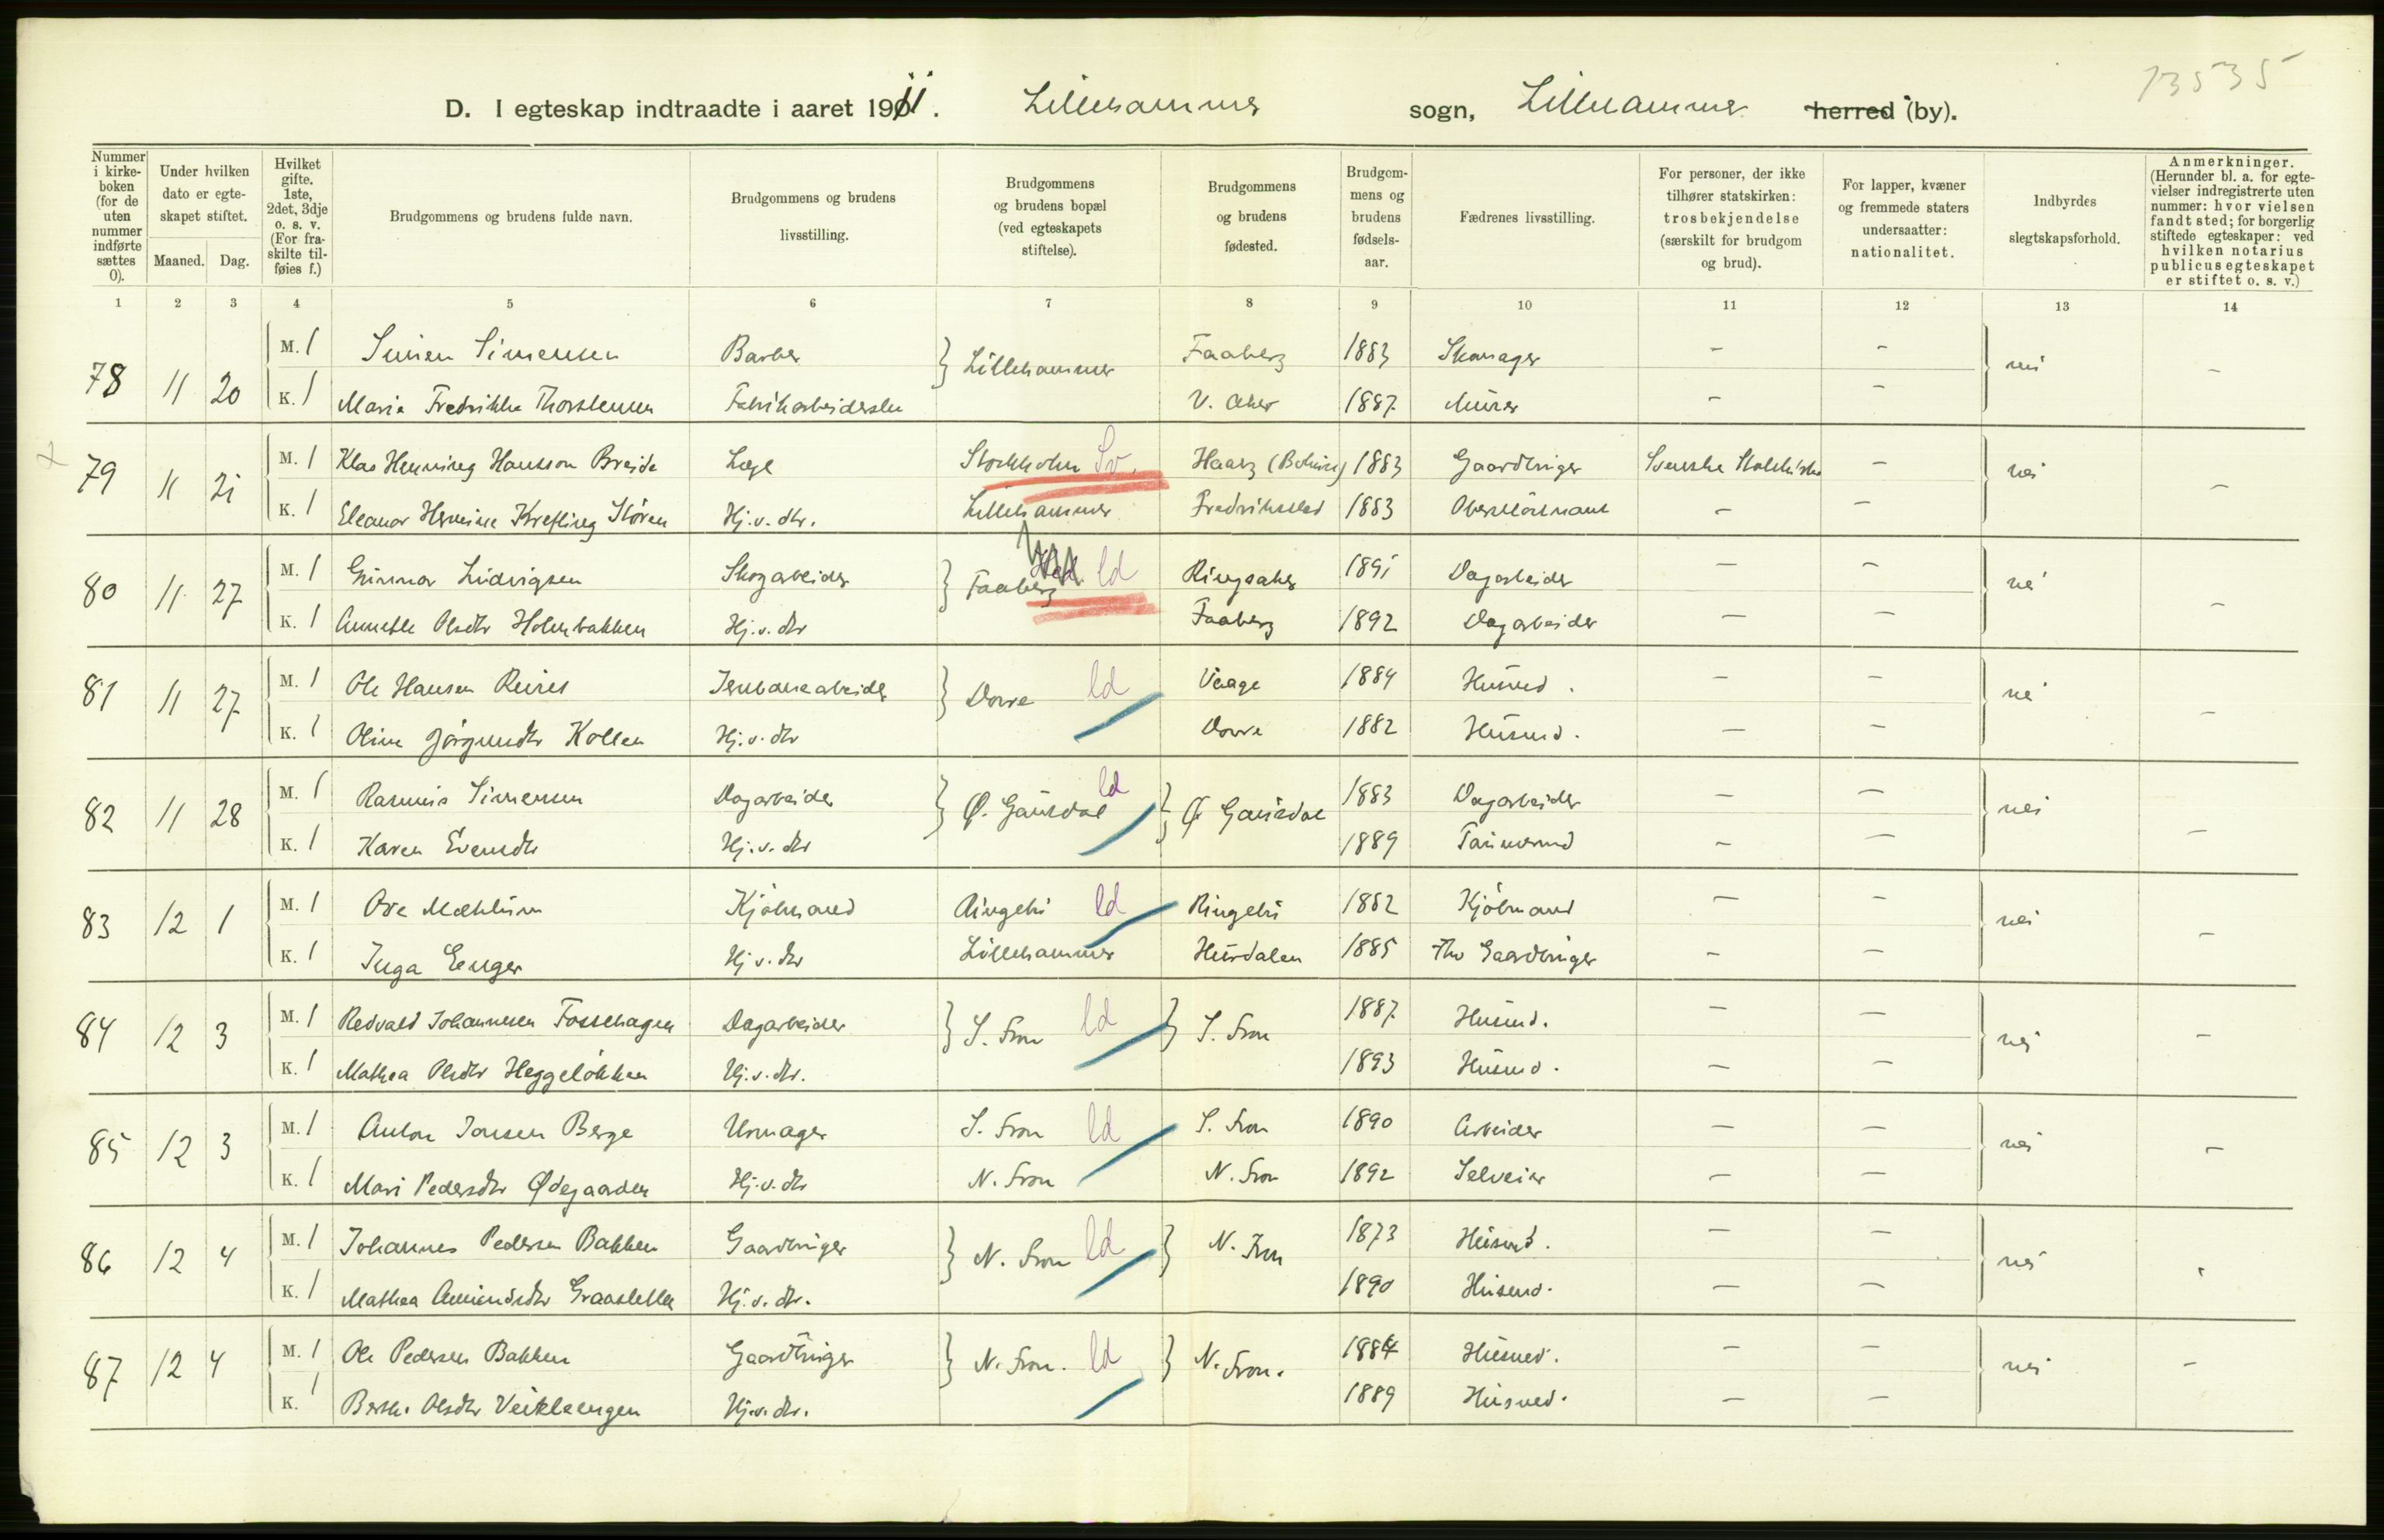 13535
D. I egteskap indtraadte i aaret 1911. Lillehammer sogn, Lillehammer herred (by).
Nummer i kirkeboken (for de uten nummer indførte sættes 0).
Under hvilken dato er egteskapet stiftet.
Maaned. Dag.
Hvilket gifte. 1ste, 2det, 3dje o. s. v. (For fraskilte tilføies f.)
Brudgommens og brudens fulde navn.
Brudgommens og brudens livsstilling.
Brudgommens og brudens bopæl (ved egteskapets stiftelse).
Brudgommens og brudens fødested.
Brudgommens og brudens fødselsaar.
Fædrenes livsstilling.
For personer, der ikke tilhører statskirken: trosbekjendelse (særskilt for brudgom og brud).
For lapper, kvæner og fremmede staters undersaatter: nationalitet.
Indbyrdes slegtskapsforhold.
Anmerkninger. (Herunder bl. a. for egtevielser indregistrerte uten nummer: hvor vielsen fandt sted; for borgerlig stiftede egteskaper: ved hvilken notarius publicus egteskapet er stiftet o. s. v.)
1 2 3 4 5 6 7 8 9 10 11 12 13 14
78 11 20 M. 1 Simen Simensen Barber Lillehammer Faaberg 1883 Skomager – – nei –
K. 1 Marie Fredrikke Thorstensen Fabrikarbeiderske V. Aker 1887 Murer – –
79 11 21 M. 1 Klas Henning Hansson Breide Læge Stockholm Sv. Haarg 1883 Gaardbruger Svenske Statskirke – nei –
K. 1 Eleanor Hermine Krefting Støren Hj.v. dtr. Lillehammer Fredriksstad 1883 Oberstløitnant – –
80 11 27 M. 1 Gunnar Ludvigsen Skogarbeider Faaberg ld Ringsaker 1891 Dagarbeider – – nei –
K. 1 Annette Olsdtr Holmbakken Hj.v. dtr Faaberg 1892 Dagarbeider – –
81 11 27 M. 1 Ole Hansen Jernbanearbeider Dovre ld Vaage 1884 Husmd. – – nei –
K. 1 Oline Jørgensdtr Kollen Hj.v. dtr Dovre 1882 Husmd. – –
82 11 28 M. 1 Rasmus Simensen Dagarbeider Ø. Gausdal ld Ø Gausdal 1883 Dagarbeider – – nei –
K. 1 Karen Evensdtr Hj.v. dtr 1889 – –
83 12 1 M. 1 Ove Mæhlum Kjøbmand Ringebu ld Ringebu 1882 Kjøbmand – – nei –
K. 1 Inga Eenger Hj v. dtr Lillehammer Hurdalen 1885 Fhv Gaardbruger – –
84 12 3 M. 1 Redvald Johannesen Fossehagen Dagarbeider S. Fron ld S. Fron 1887 Husmd. – – nei –
K. 1 Mathea Olsdtr Heggeløkken Hj.v. dtr. 1893 Husmd. – –
85 12 3 M. 1 Anton Jonsen Berge Urmager S. Fron ld S. Fron 1890 Arbeider – – nei –
K. 1 Mari Pedersdtr Ødegaarden Hj.v. dtr N. Fron N. Fron 1892 Selveier – –
86 12 4 M. 1 Johannes Pedersen Bakken Gaardbruger N. Fron ld N. Fron 1873 Husmd. – – nei
K. 1 Mathea Amundsdtr Graasletta Hj.v. dtr. 1890 Husmd. – –
87 12 4 M. 1 Ole Pedersen Bakken Gaardbruger N. Fron. ld N. Fron. 1884 Husmd. – – nei –
K. 1 Berthe Olsdtr Veikleengen Hj.v. dtr. 1889 Husmd. – –